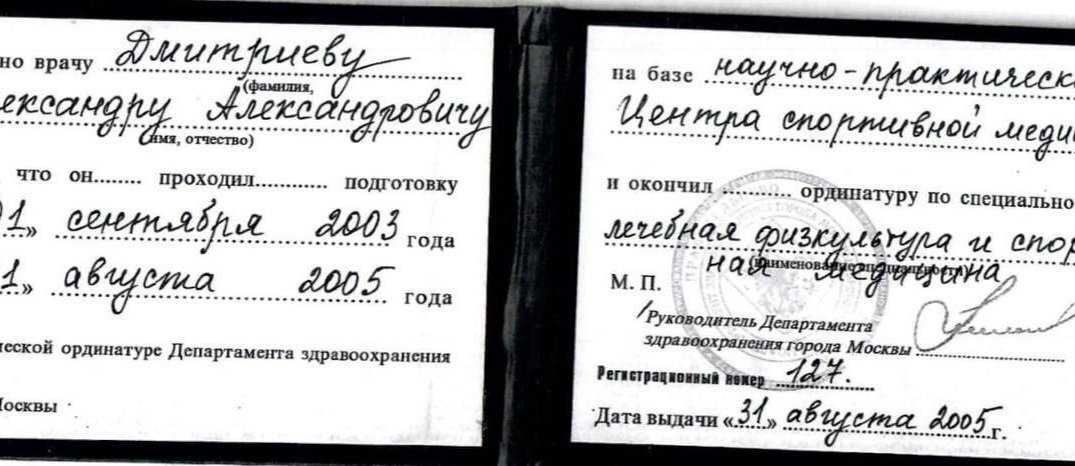 но врачу Дмитриеву
(фамилия,
ександру Александровичу
имя, отчество)
что он........ проходил............ подготовку
01» сентября 2003 года
1» августа 2005 года
ческой ординатуре Департамента здравоохранения
Москвы
на базе научно-практическ
Центра спортивной меди
и окончил ........... ординатуру по специально
лечебная физкультура и спор
(наименование специальности)
ная медицина
М. П.
Руководитель Департамента
здравоохранения города Москвы
Регистрационный номер 127.
Дата выдачи «31» августа 2005 г.